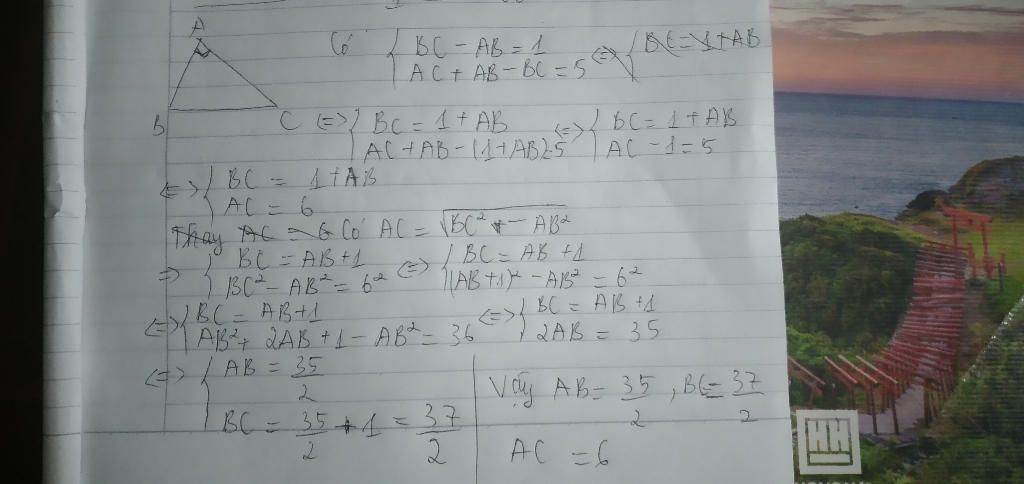 A
B
C
Có { BC - AB = 1
AC + AB - BC = 5 <=> { BC = 1 + AB
<=> { BC = 1 + AB
AC + AB - (1 + AB) = 5 <=> { BC = 1 + AB
AC - 1 = 5
<=> { BC = 1 + AB
AC = 6
Thay AC = 6 Có AC = √BC² - AB²
=> { BC = AB + 1
BC² - AB² = 6² <=> { BC = AB + 1
(AB + 1)² - AB² = 6²
<=> { BC = AB + 1
AB² + 2AB + 1 - AB² = 36 <=> { BC = AB + 1
2AB = 35
<=> { AB = 35/2
BC = 35/2 + 1 = 37/2
Vậy AB = 35/2, BC = 37/2
AC = 6
HH